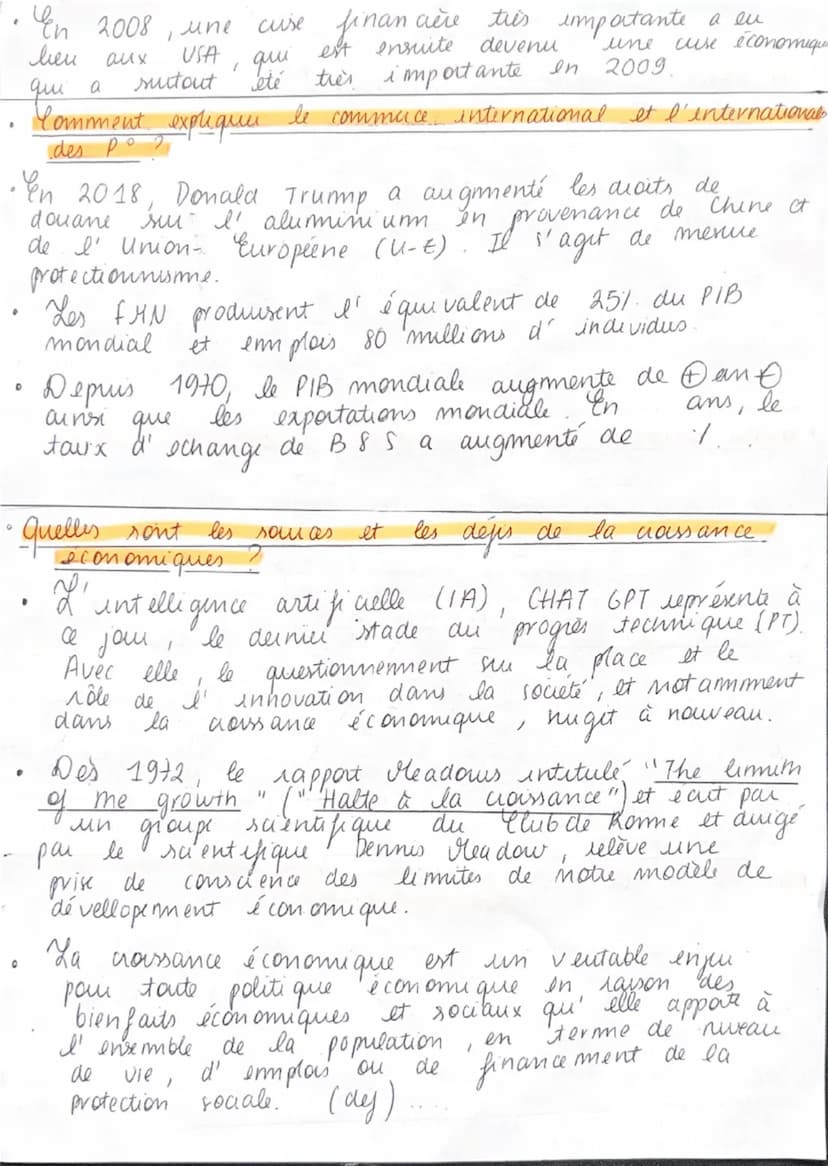 • En 2008, une crise financière très importante a eu
lieu aux USA, qui est ensuite devenu une crise économique
qui a surtout été très importante en 2009.
• Comment expliquer le commerce international et l'international
des P° ?
• En 2018, Donald Trump a augmenté les droits de
douane sur l'aluminium en provenance de Chine et
de l'Union-Européene (U-E). Il s'agit de mesure
protectionnisme.
• Les FMN produisent l'équivalent de 25% du PIB
mondial et emplois 80 millions d'individus.
• Depuis 1970, le PIB mondiale augmente de + en +
ainsi que les exportations mondiale. En ans, le
taux d'echange de B & S a augmenté de %.
• Quelles sont les sources et les défis de la croissance
économiques ?
• L'intelligence artificielle (IA), CHAT GPT représente à
ce jour, le dernier stade du progrès technique (PT).
Avec elle, le questionnement sur la place et le
rôle de l'innovation dans la société, et notamment
dans la croissance économique, rugit à nouveau.
• Dès 1972, le rapport Meadows intitulé "The limith
of me growth" ("Halte à la croissance") et écrit par
un groupe scientifique du Club de Rome et dirigé
par le scientifique Dennis Meadow, relève une
prise de conscience des limites de notre modèle de
dévellopement économique.
• La croissance économique est un veritable enjeu
pour toute politique économique en raison des
bienfaits économiques et sociaux qu'elle apporte à
l'ensemble de la population, en terme de niveau
de vie, d'emplois ou de financement de la
protection sociale. (def) ....